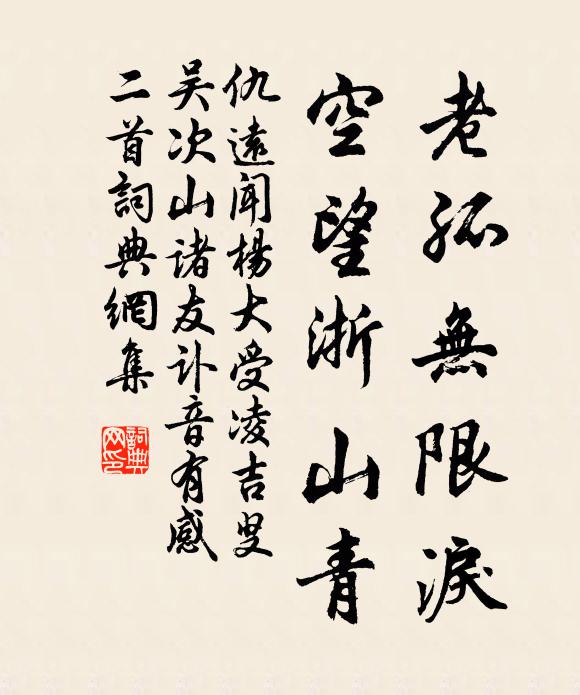 老孤無限淚
空望浙山青
仇遠聞楊大受凌吉叟
吴次山諸友訃音有感
二首詞典網集
詞典
网印